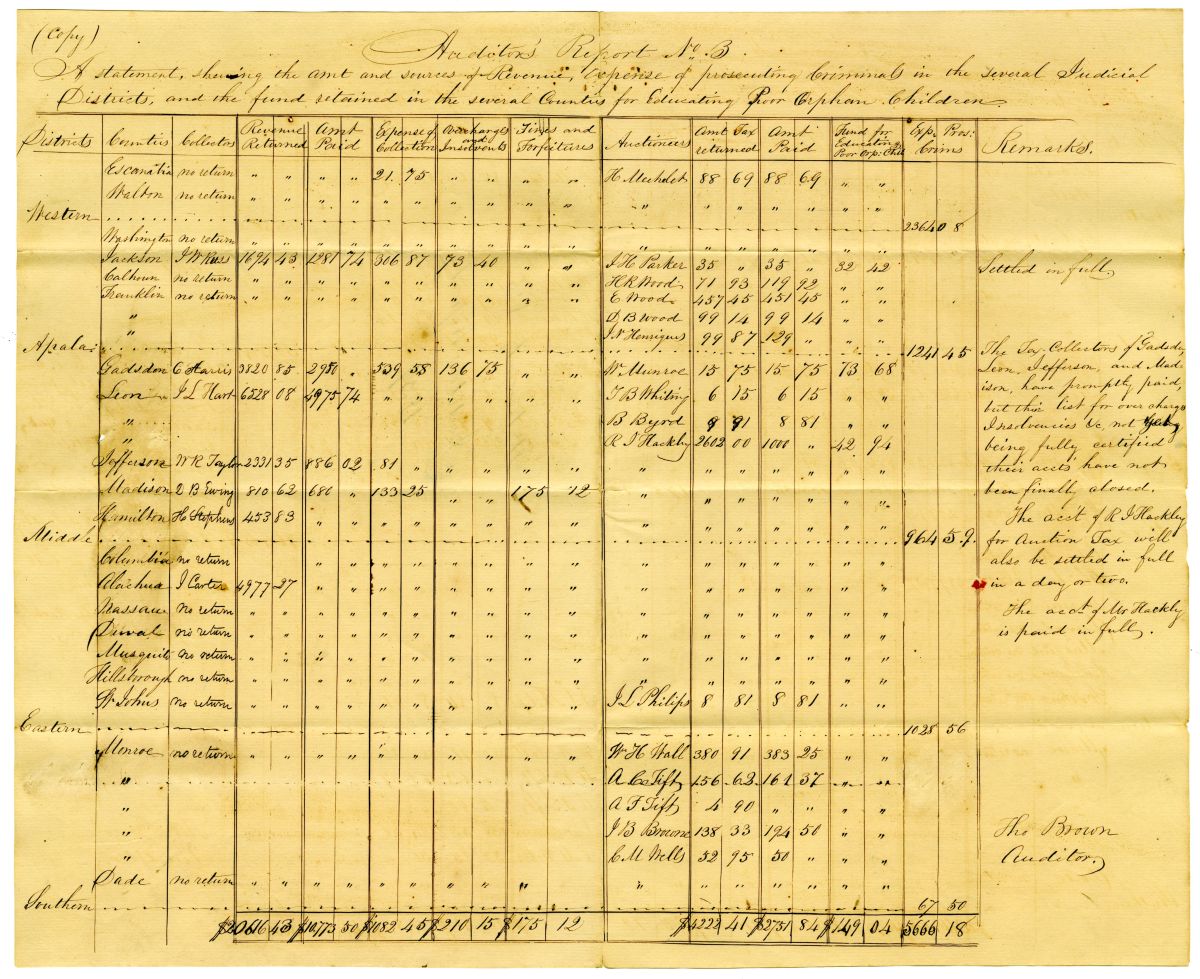 (Copy)
Auditor's Report No. 3
A statement, shewing the amt and sources of Revenue, Expense of prosecuting Criminals in the several Judicial
Districts, and the fund retained in the several Counties for Educating Poor Orphan Children
Districts Counties Collectors Revenue Returned Amt Paid Expense of Collection Overcharges and Insolvents Fines and Forfeitures Auctioneers Amt Tax returned Amt Paid Fund for Educating Poor Orp: Chil Exp. Pros: Crims Remarks.
Escambia no return " " " " 21. 75 " " " " H Mechdet 88 69 88 69 " "
Walton no return " " " " " " " " " " " " " " " " "
Western 2364 08
Washington no return " " " " " " " " " " " " " " " "
Jackson J W Russ 1694 43 1281 74 306 87 73 40 " " J H Parker 35 " 35 " 32 42 Settled in full,
Calhoun no return " " " " " " " " " " H R Wood 71 93 119 92 " "
Franklin no return " " " " " " " " " " E Wood 457 45 451 45 " "
" D B Wood 99 14 99 14 " "
" J N Henriques 99 87 129 " " "
Apala: 1241 45
Gadsdon C Harris 3820 85 2950 " 539 58 136 75 " " W Munroe 15 75 15 75 73 68
Leon J L Hart 6528 08 4975 74 " " " " " " T B Whiting 6 15 6 15 " "
" B Byrd 9 91 8 81 " "
" R J Hackley 2602 00 1000 " 42 94
Jefferson W R Taylor 2331 35 886 02 81 " " " " " " " " " " " "
Madison D B Ewing 810 62 680 " 133 25 " " 175 12 " " " " " " "
Hamilton H Stephens 453 83 " " " " " " " " " " " " " " "
Middle 964 59.
Columbia no return " " " " " " " " " " " " " " "
Alachua J Carter 4977 27 " " " " " " " " " " " " " " "
Nassau no return " " " " " " " " " " " " " " " " "
Duval no return " " " " " " " " " " " " " " " " "
Musquito no return " " " " " " " " " " " " " " " " "
Hillsborough no return " " " " " " " " " " " " " " " " "
St Johns no return " " " " " " " " " " J L Philips 8 81 8 81 " "
Eastern 1028 56
Monroe no return " " " " " " " " " " W H Wall 380 91 383 25 " "
" A C Tift 156 62 161 37 " "
" A F Tift 4 90 " " " "
" J B Browne 138 33 194 50 " "
" C M Wells 52 95 50 " " "
Dade no return " " " " " " " " " " " " " " " " "
Southern 67 50
$20616 43 $10,773 50 $1082 45 $210 15 $175 12 $4222 41 $2751 84 $149 04 5666 18
The Tax Collectors of Gadsden,
Leon, Jefferson, and Mad-
ison, have promptly paid,
but their list for over charge
Insolvencies &c, not
being fully certified
their accts have not
been finally closed.
The acct of R J Hackley
for Auction Tax will
also be settled in full
in a day or two.
The acct of Mr Hackley
is paid in full,.
Tho Brown
Auditor,